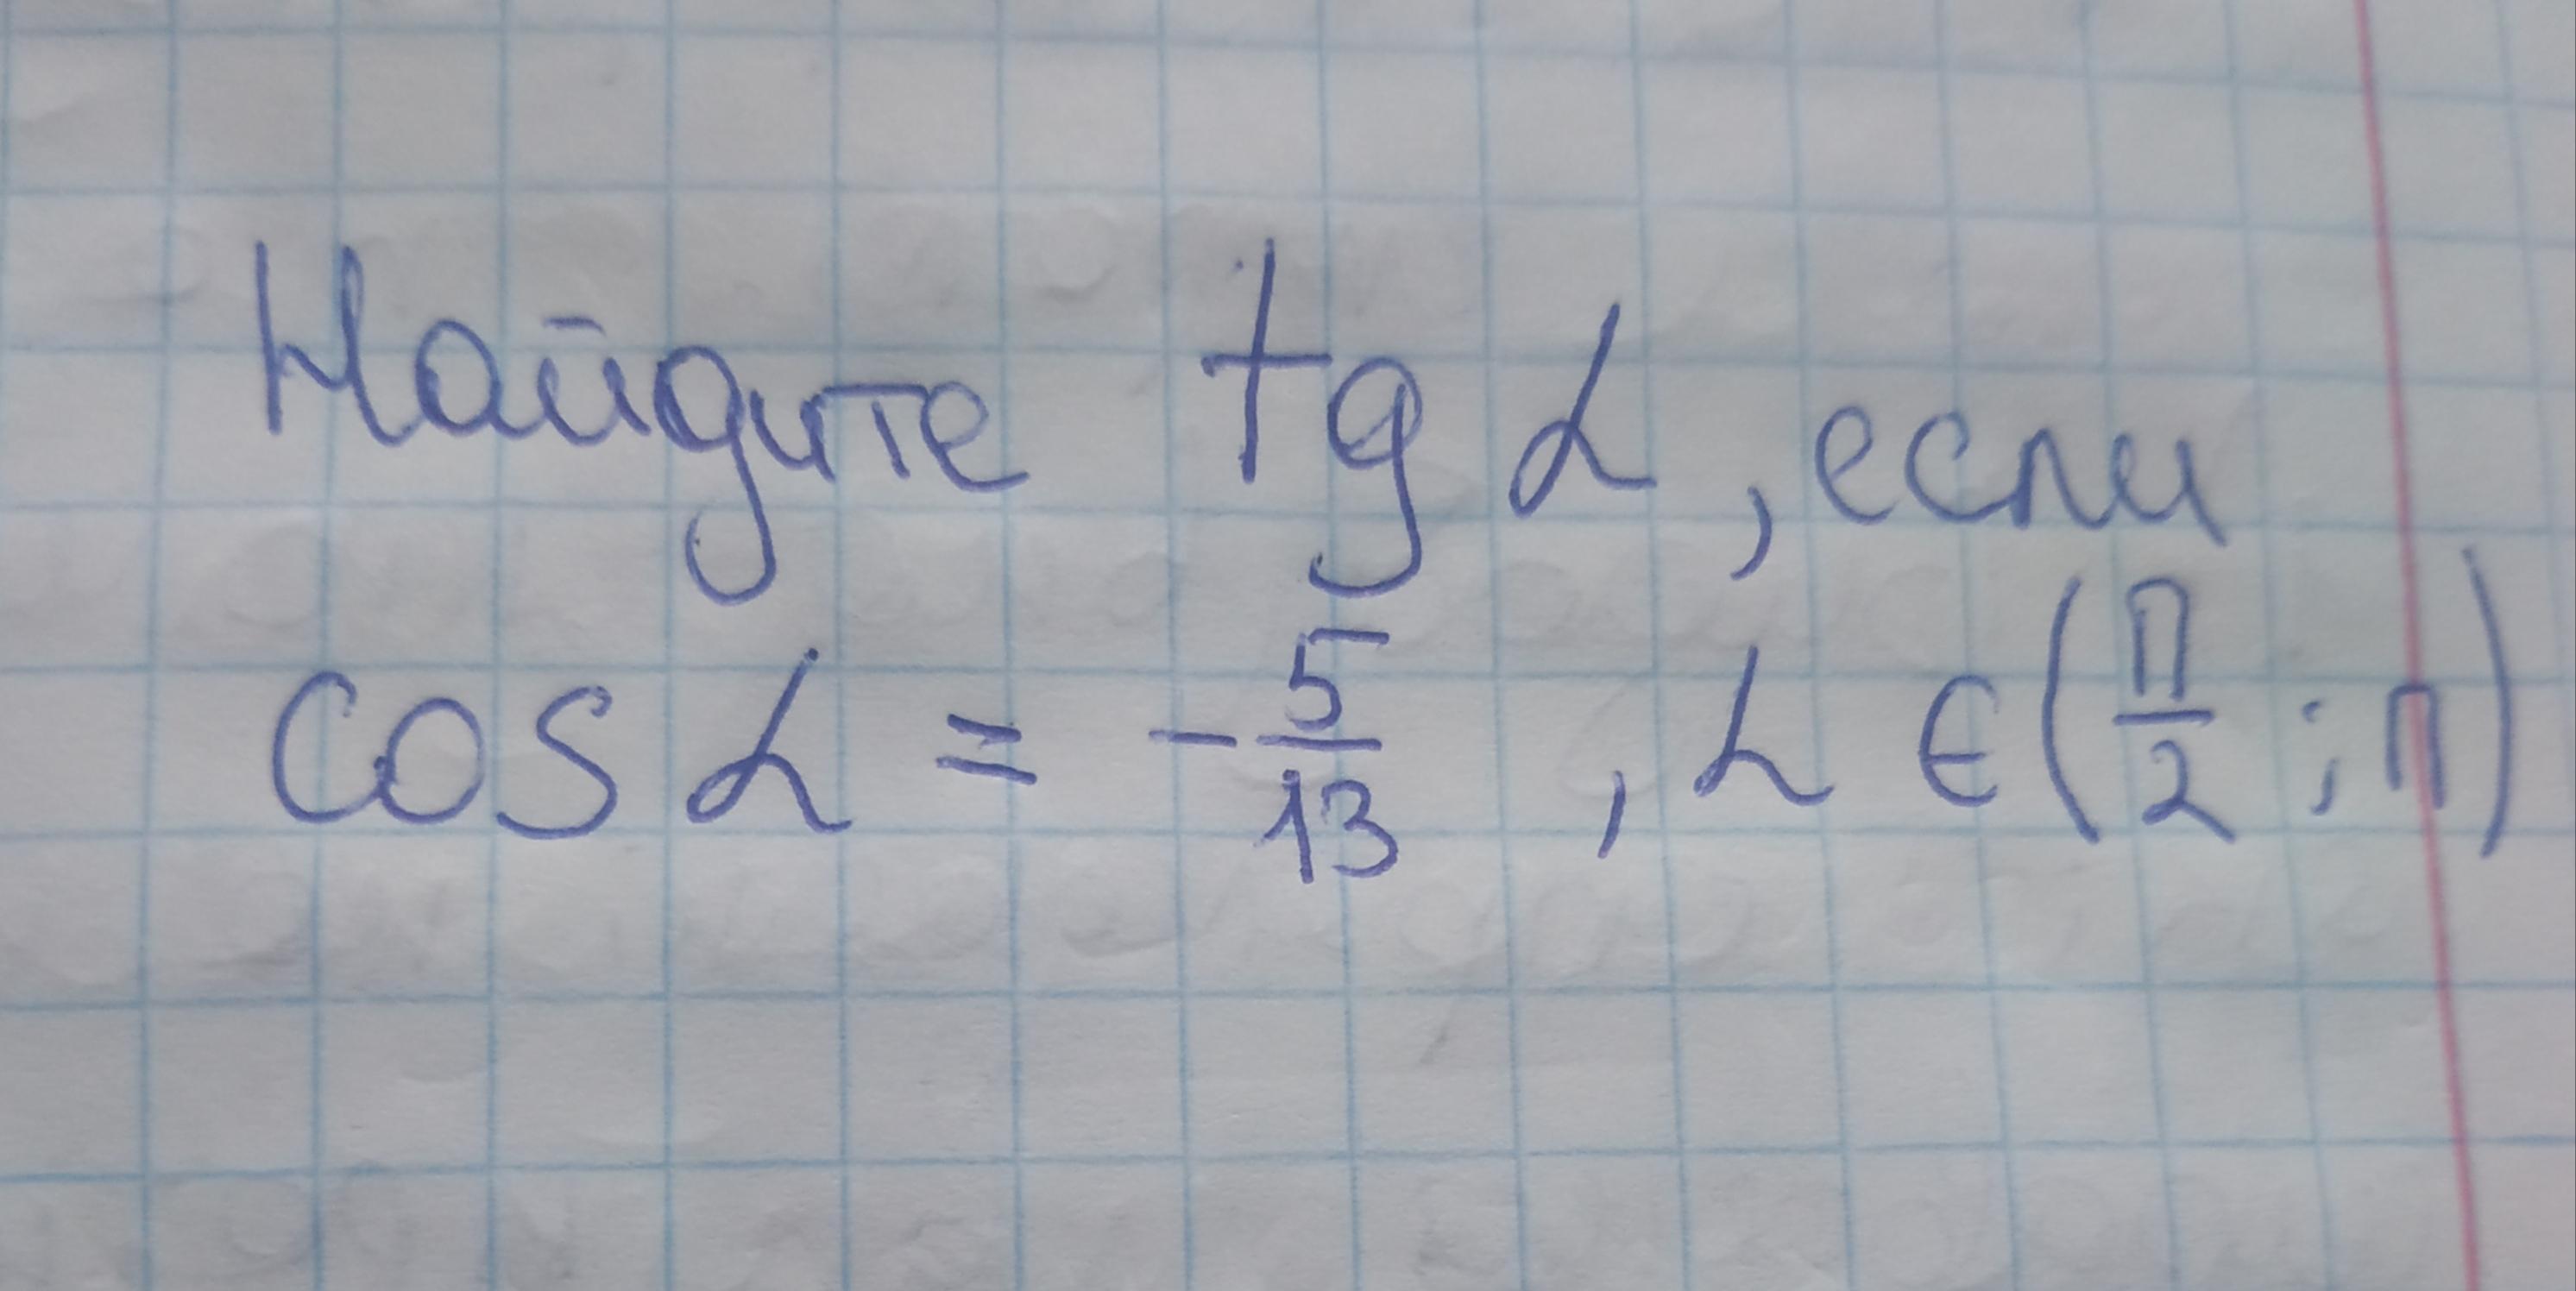 Найдите tg α, если
cos α = -5/13, α ∈ (π/2; π)